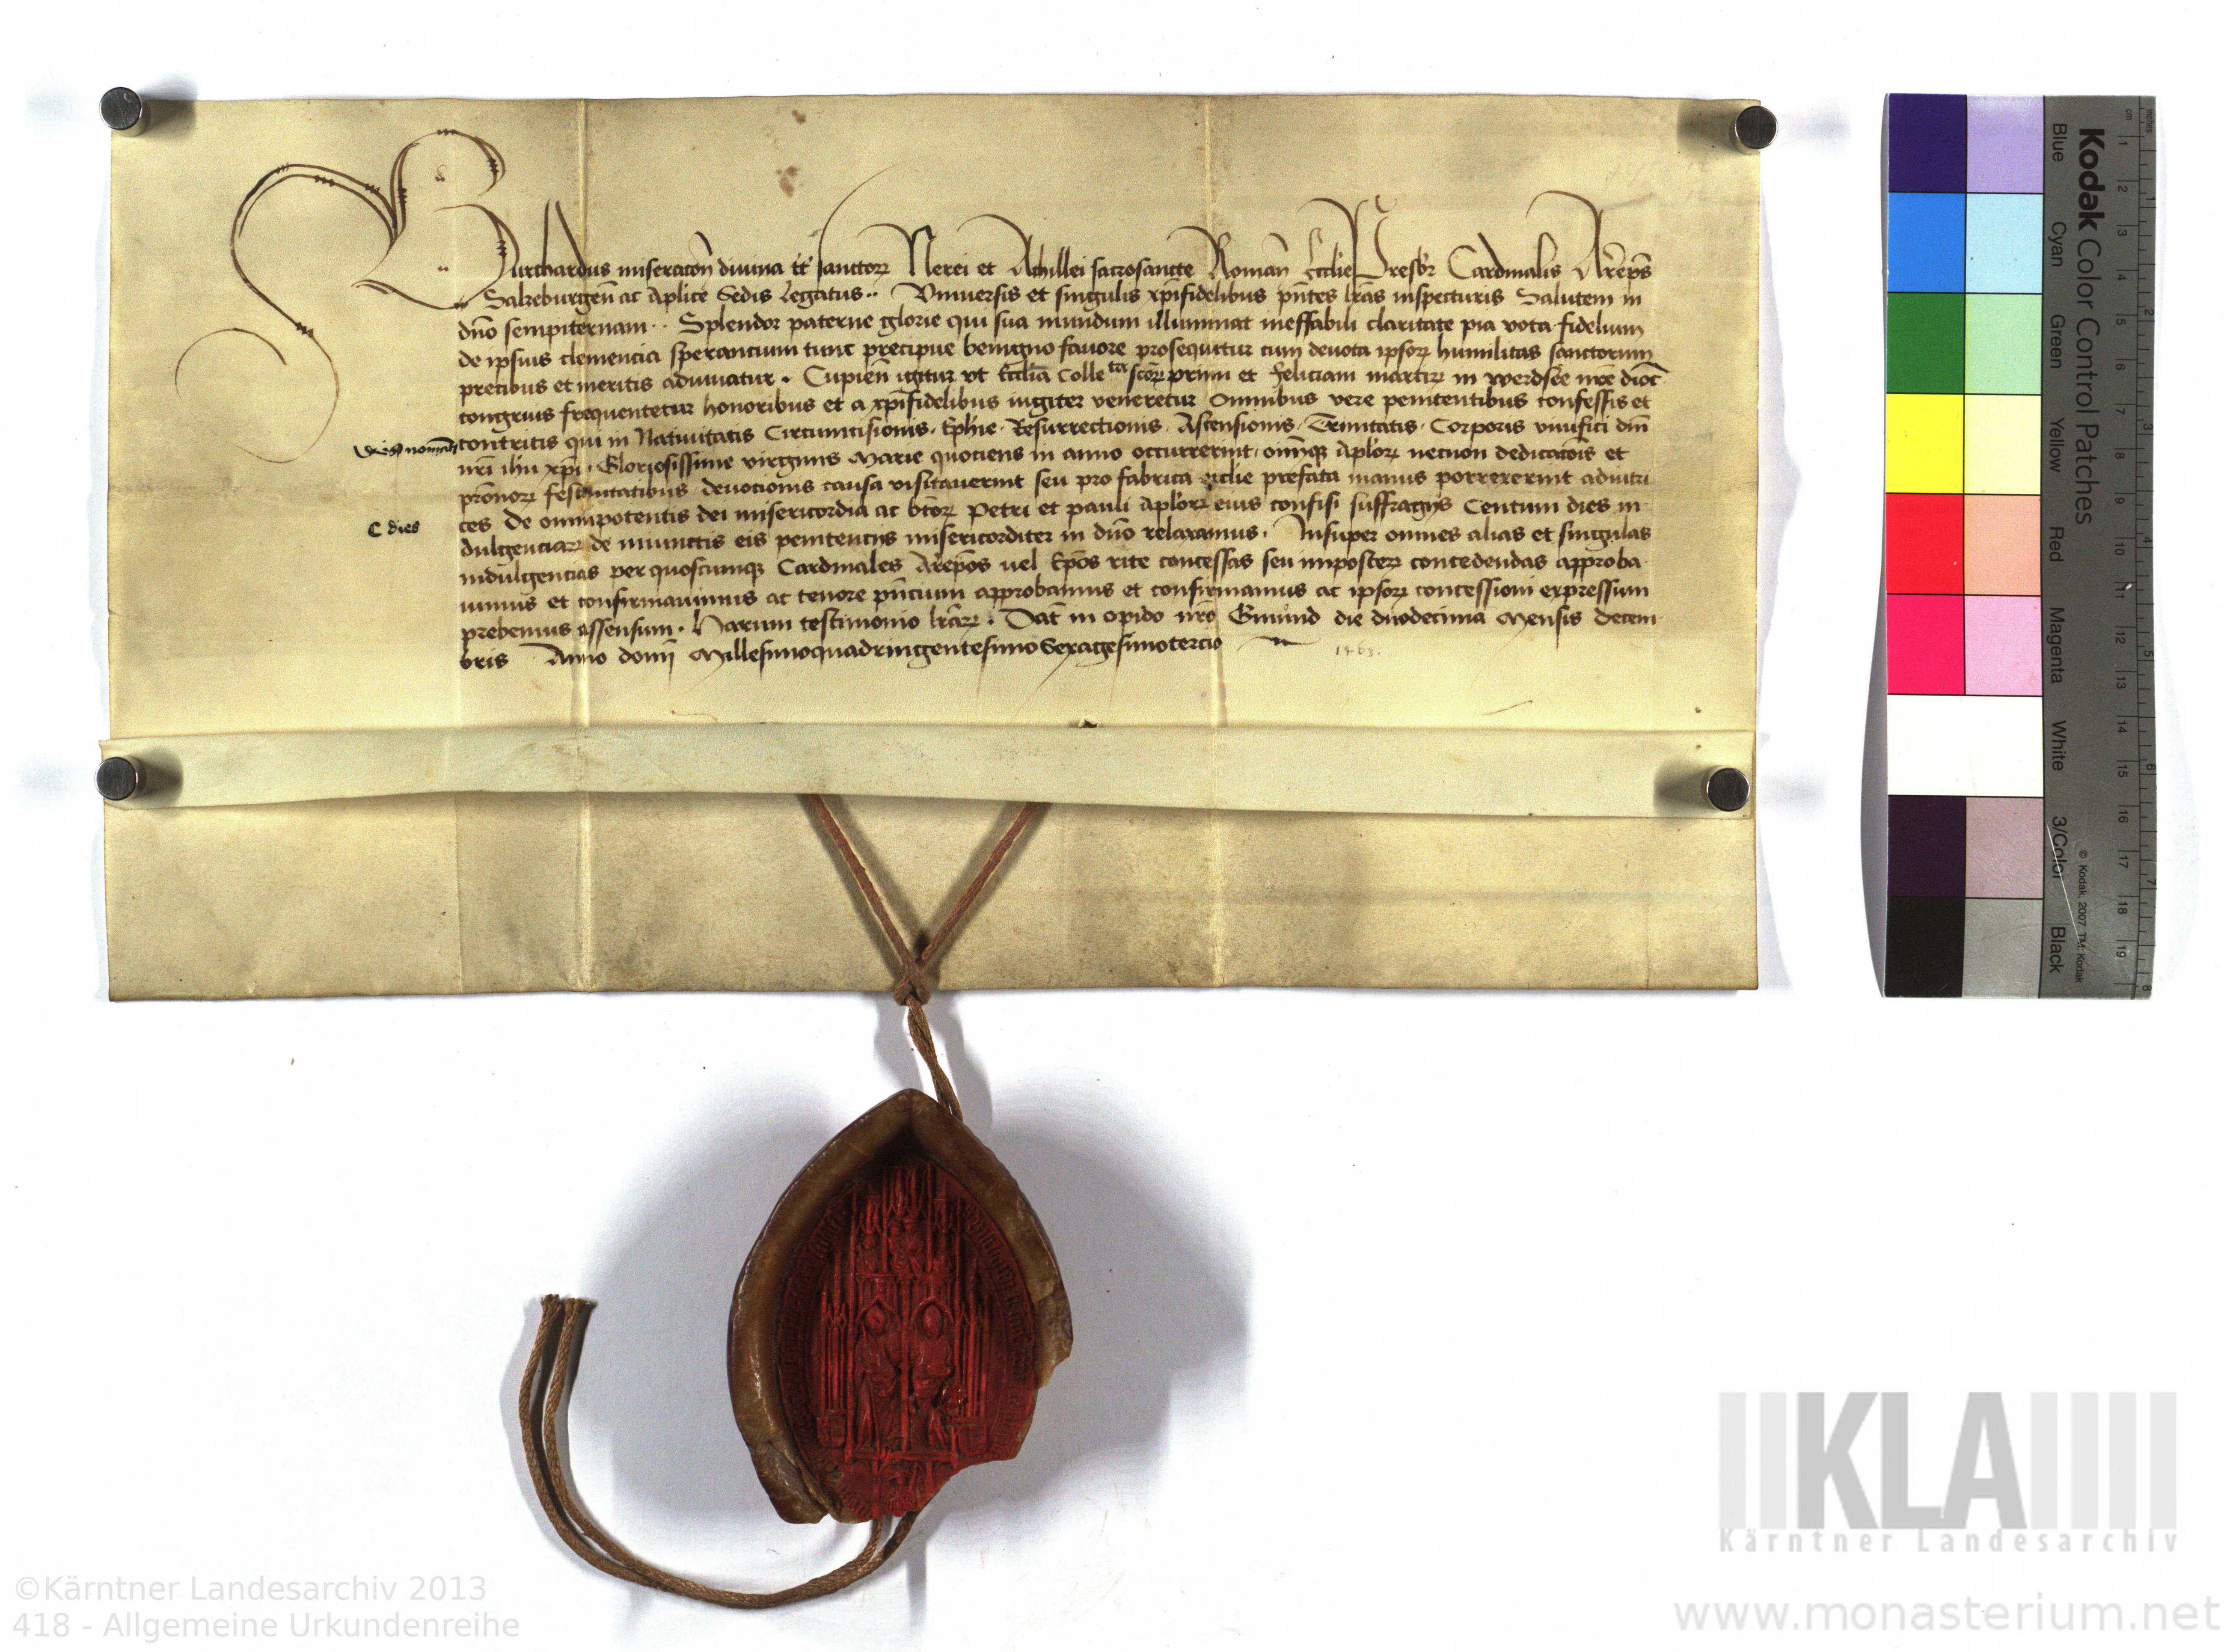 Burchardus miseracōn diuina tt̄ sanctoꝝ Nerei et Achillei sacrosancte Romañ Eccl̄ie Presbr̄ Cardinalis Arēp̄s
Salzeburgeñ ac Aplīce Sedis Legatus ·· Vniuersis et singulis xp̄ifidelibus pn̄tes lr̄as inspecturis Salutem in
dn̄o sempiternam ·· Splendor paterne glorie qui sua mundum illuminat ineffabili claritate pia vota fidelium
de ipsius clemencia sperancium tunc precipue benigno fauore prosequitur cum deuota ipsoꝝ humilitas sanctorum
precibus et meritis adiuuatur · Cupieñ igitur vt Eccl̄ia Colleta scōꝝ primi et feliciani martirꝝ in werdsee nrē dioc̄
congruis frequentetur honoribus et a xp̄ifidelibus iugiter veneretur Omnibus vere penitentibus confessis et
contritis qui in Natiuitatis Circumcisionis · Eph̄ie · Resurrectionis · Ascensionis · Trinitatis · Corporis viuifici dn̄i
nr̄i ih̄u xp̄i · Gloriosissime virginis Marie quociens in anno occurrerint · oīmqꝫ Aplōꝝ necnon dedicacōis et
prōnorꝝ festiuitatibus deuocionis causa visitauerint seu pro fabrica eccl̄ie prefata manus porrexerint adiutri
ces De omnipotentis dei misericordia ac btōꝝ Petri et pauli Aplōꝝ eius confisi suffragijs Centum dies in
dulgenciaꝝ de iniunctis eis penitencijs misericorditer in dn̄o relaxamus · Insuper omnes alias et singulas
indulgencias per quoscumqꝫ Cardinales Arēpōs uel Epōs rite concessas seu imposterꝝ concedendas approba
uimus et confirmauimus ac tenore pn̄cium approbamus et confirmamus ac ipsoꝝ concessioni expressum
prebemus assensum · Harum testimonio lrāꝝ · Dat̄ in opido nrō Gmünd die duodecima Mensis Decem
bris Anno domī Millesimoquadringentesimo Sexagesimotercio
1463.
C dies
Kodak Color Control Patches
Blue Cyan Green Yellow Red Magenta White 3/Color Black
© Kodak, 2007 TM: Kodak
inches 1 2 3 4 5 6 7 8
cm 1 2 3 4 5 6 7 8 9 10 11 12 13 14 15 16 17 18 19
KLA
Kärntner Landesarchiv
©Kärntner Landesarchiv 2013
418 - Allgemeine Urkundenreihe
www.monasterium.net